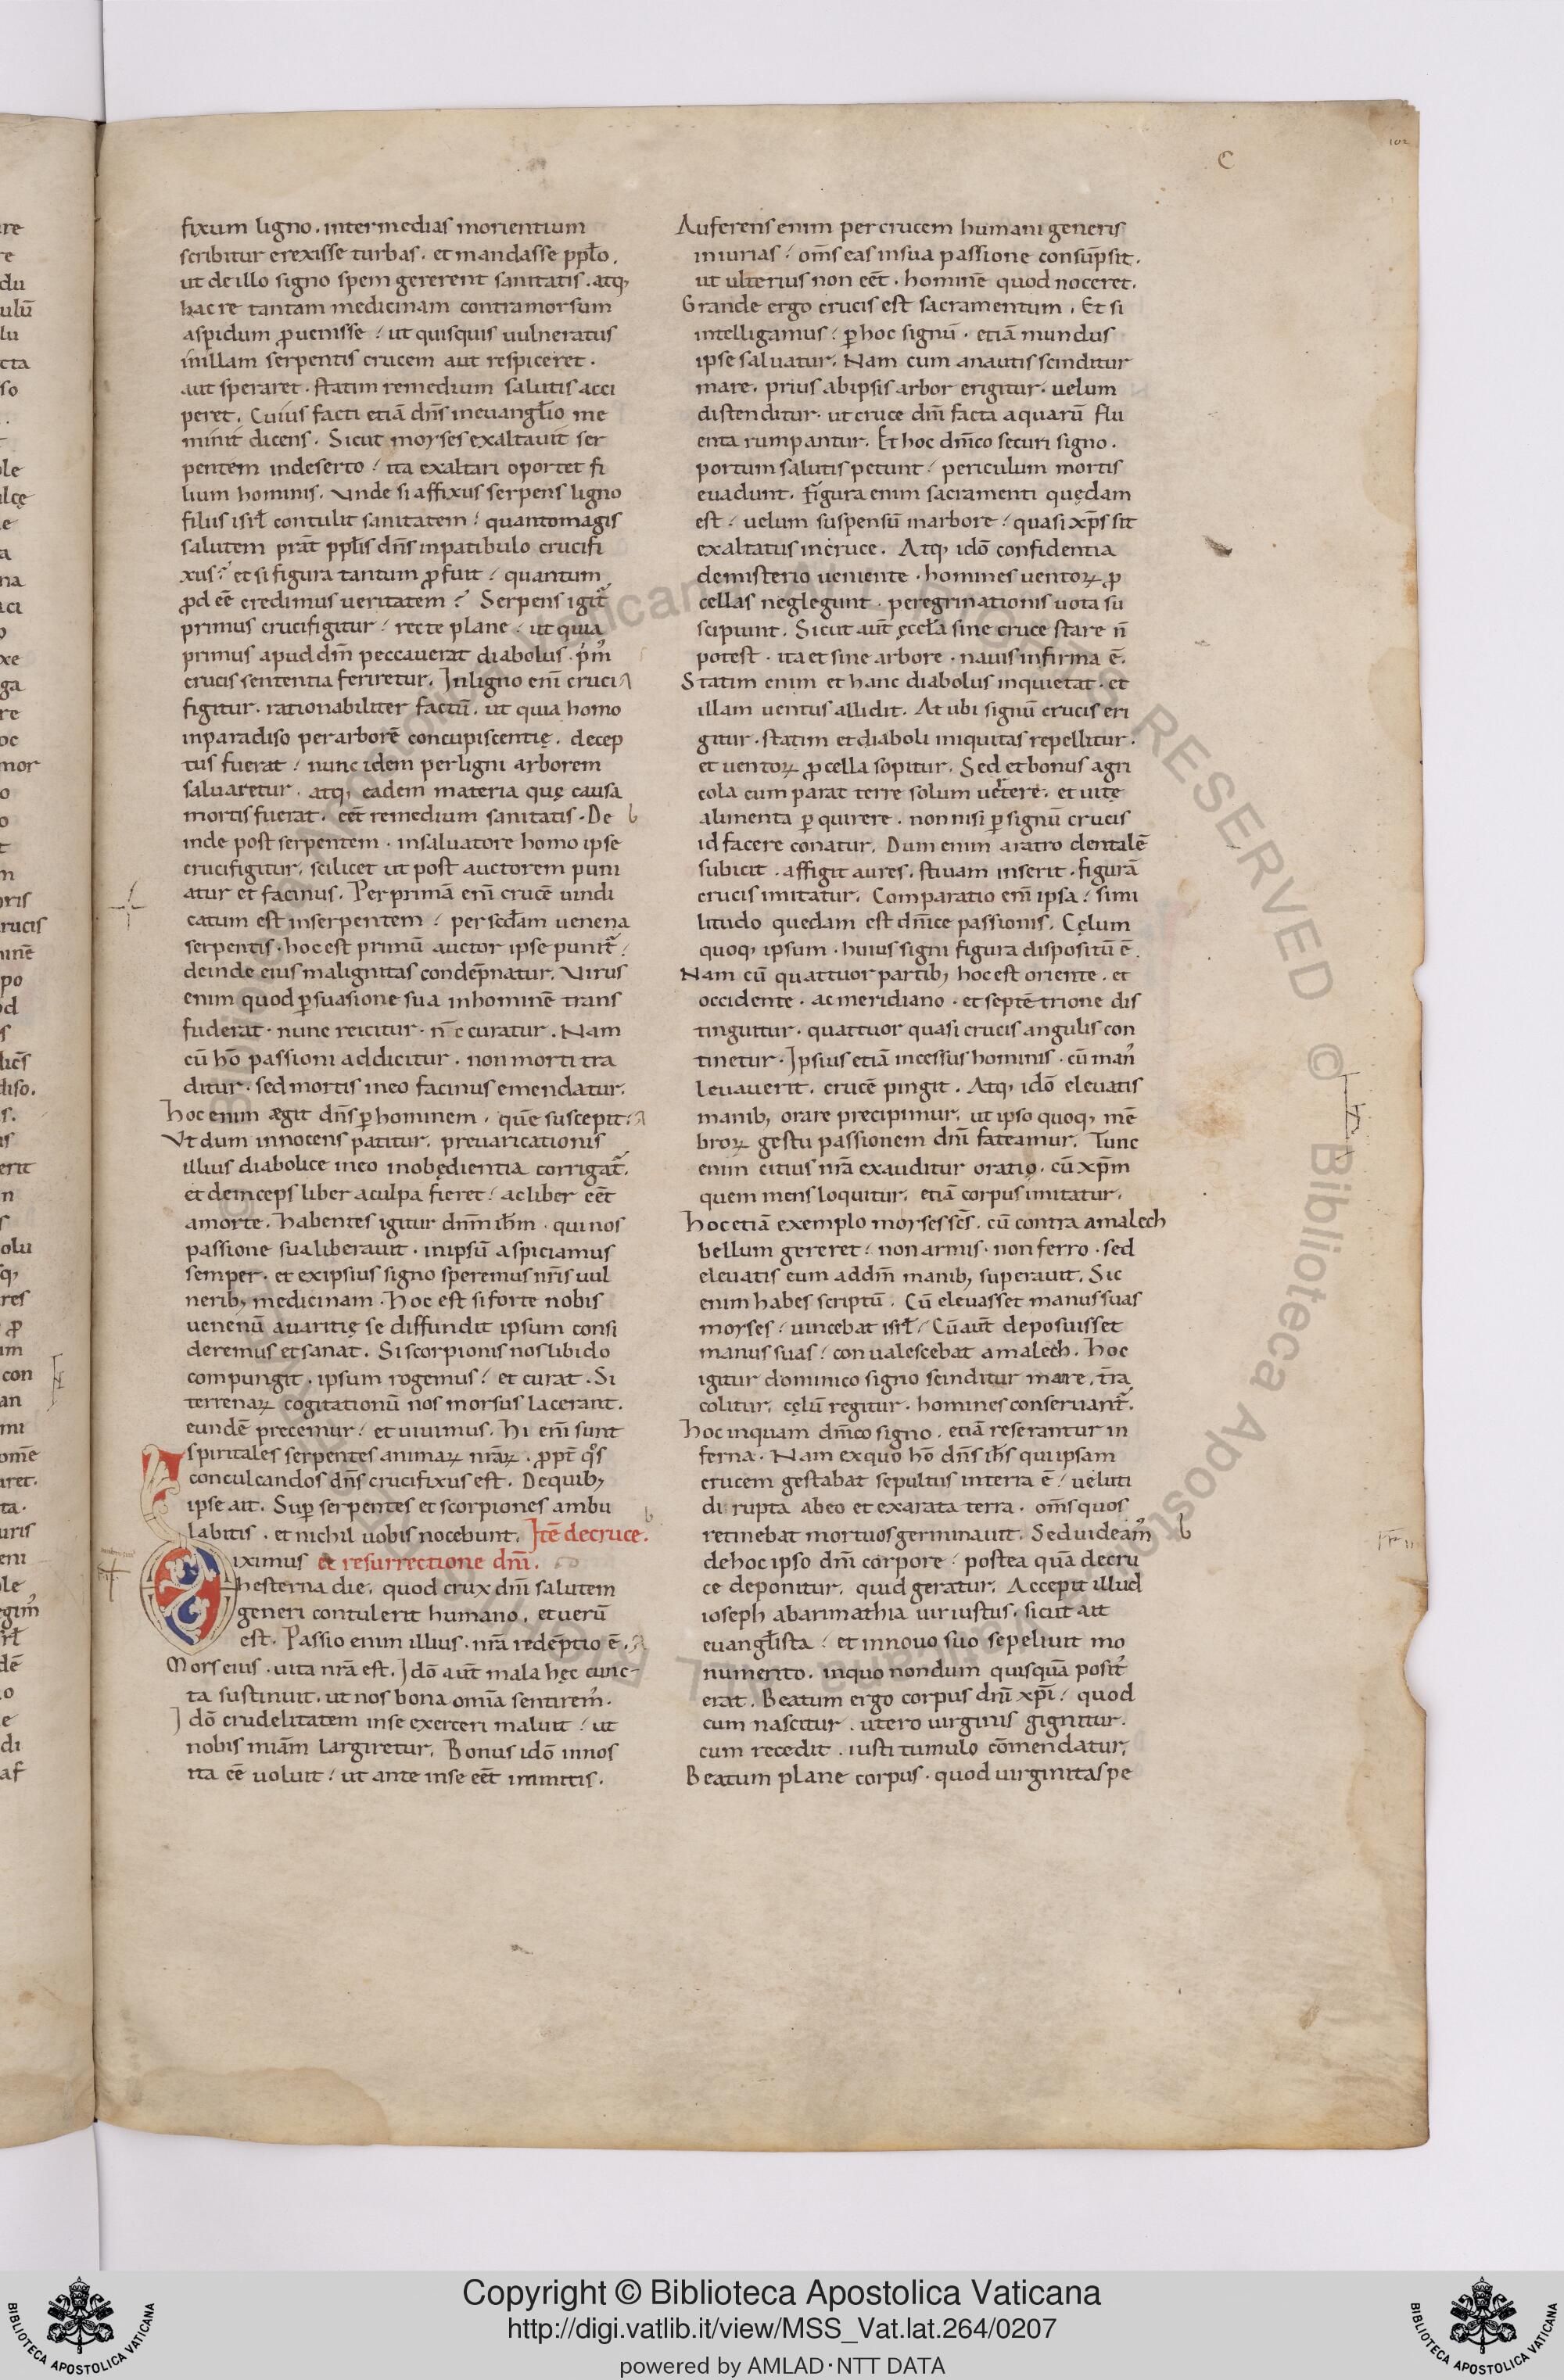 102
C
fixum ligno. intermedias morientium
scribitur erexisse turbas. et mandasse pplo.
ut de illo signo spem gererent sanitatis. atq;
hac re tantam medicinam contra morsum
aspidum ꝓuenisse / ut quisquis uulneratus
in illam serpentis crucem aut respiceret.
aut speraret. statim remedium salutis acci
peret. Cuius facti etiā dn̄s in euanglīo me
minit dicens. Sicut moyses exaltauit ser
pentem in deserto / ita exaltari oportet fi
lium hominis. Vnde si affixus serpens ligno
filiis isrl̄ contulit sanitatem / quanto magis
salutem prāt pplis dn̄s in patibulo crucifi
xus? et si figura tantum ꝓfuit / quantum
ꝓd eē credimus ueritatem? Serpens igit̄
primus crucifigitur / recte plane / ut quia
primus apud dm̄ peccauerat diabolus. p̄m᷒
crucis sententia feriretur. In ligno eni᷒ cruci
figitur. rationabiliter factū. ut quia homo
in paradiso per arborē concupiscentię. decep
tus fuerat / nunc idem per ligni arborem
saluaretur. atq; eadem materia quę causa
mortis fuerat. eēt remedium sanitatis. De b
inde post serpentem. in saluatore homo ipse
crucifigitur. scilicet ut post auctorem puni
atur et facinus. Per primā eni᷒ crucē uindi
catum est in serpentem / per scd̄am uenena
serpentis. hoc est primū auctor ipse punit̄ /
deinde eius malignitas condēpnatur. Virus
enim quod ꝑsuasione sua in hominē trans
fuderat. nunc reicitur. n̄c curatur. Nam
cū hō passioni addicitur. non morti tra
ditur. sed mortis in eo facinus emendatur.
Hoc enim ægit dn̄s ꝑ hominem. quē suscepit.
Vt dum innocens patitur. preuaricationis
illius diabolice in eo inobędientia corrigat̄.
et deinceps liber a culpa fieret / ac liber eēt
a morte. Habentes igitur dnm̄ ihm̄. qui nos
passione sua liberauit. in ipsū aspiciamus
semper. et ex ipsius signo speremus nr̄is uul
nerib; medicinam. Hoc est si forte nobis
uenenū auaritię se diffundit ipsum consi
deremus et sanat. Si scorpionis nos libido
compungit. ipsum rogemus / et curat. Si
terrenaꝝ cogitationū nos morsus lacerant.
eundē precemur / et uiuimus. Hi eni᷒ sunt
spiritales serpentes animaꝝ nr̄aꝝ. ꝓpt̄ qos
conculcandos dn̄s crucifixus est. De quib;
ipse ait. Suꝑ serpentes et scorpiones ambu
labitis. et nichil uobis nocebunt. Itē de cruce.
Diximus et resurrectione dni᷒.
hesterna die. quod crux dni᷒ salutem
generi contulerit humano. et uerū
est. Passio enim illius. nr̄a redēptio ē.
Mors eius. uita nr̄a est. Idō aut̄ mala hęc cunc-
ta sustinuit. ut nos bona omīa sentirem᷒.
Idō crudelitatem in se exerceri maluit / ut
nobis miām largiretur. Bonus idō in nos
ita eē uoluit / ut ante in se eēt inmitis.
Auferens enim per crucem humani generis
iniurias / om̄s eas in sua passione consūpsit.
ut ulterius non eēt. hominē quod noceret.
Grande ergo crucis est sacramentum. Et si
intelligamus / ꝑ hoc signū. etiā mundus
ipse saluatur. Nam cum a nautis scinditur
mare. prius ab ipsis arbor erigitur. uelum
distenditur. ut cruce dni᷒ facta aquarū flu
enta rumpantur. Et hoc dn̄ico securi signo.
portum salutis petunt / periculum mortis
euadunt. Figura enim sacramenti quędam
est / uelum suspensū in arbore / quasi xp̄s sit
exaltatus in cruce. Atq; idō confidentia
de misterio ueniente. homines uentoꝝ ꝓ
cellas neglegunt. peregrinationis uota su
scipiunt. Sicut aut̄ ęccl̄a sine cruce stare n̄
potest. ita et sine arbore. nauis infirma ē.
Statim enim et hanc diabolus inquietat. et
illam uentus allidit. At ubi signū crucis eri
gitur. statim et diaboli iniquitas repellitur.
et uentoꝝ ꝓcella sopitur. Sed et bonus agri
cola cum parat terre solum uertere. et uitę
alimenta ꝑquirere. non nisi ꝑ signū crucis
id facere conatur. Dum enim aratro dentalē
subicit. affigit aures. stiuam inserit. figurā
crucis imitatur. Comparatio eni᷒ ipsa / simi
litudo quedam est dn̄ice passionis. Cęlum
quoq; ipsum. huius signi figura dispositū ē.
Nam cū quattuor partib; hoc est oriente. et
occidente. ac meridiano. et septētrione dis
tinguitur. quattuor quasi crucis angulis con
tinetur. Ipsius etiā incessus hominis. cū man᷒
leuauerit. crucē pingit. Atq; idō eleuatis
manib; orare precipimur. ut ipso quoq; mē
broꝝ gestu passionem dni᷒ fateamur. Tunc
enim citius nr̄a exauditur oratio. cū xp̄m
quem mens loquitur. etiā corpus imitatur.
Hoc etiā exemplo moyses sc̄s. cū contra amalech
bellum gereret / non armis. non ferro. sed
eleuatis eum ad dm̄ manib; superauit. Sic
enim habes scriptū. Cū eleuasset manus suas
moyses / uincebat isrl̄ / Cū aut̄ deposuisset
manus suas / conualescebat amalech. Hoc
igitur dominico signo scinditur mare. tr̄a
colitur. cęlū regitur. homines conseruant̄.
Hoc inquam dn̄ico signo. etiā reserantur in
ferna. Nam ex quo hō dn̄s ih̄s qui ipsam
crucem gestabat sepultus in terra ē / ueluti
dirupta ab eo et exarata terra. om̄s quos
retinebat mortuos germinauit. Sed uideam᷒ b
de hoc ipso dni᷒ corpore / postea quā de cru
ce deponitur. quid geratur. Accepit illud
ioseph ab arimathia uir iustus. sicut ait
euangl̄ista / et in nouo suo sepeliuit mo
numento. in quo nondum quisquā posit᷒
erat. Beatum ergo corpus dni᷒ xp̄i / quod
cum nascitur. utero uirginis gignitur.
cum recedit. iusti tumulo cōmendatur.
Beatum plane corpus. quod uirginitas pe
Copyright © Biblioteca Apostolica Vaticana
http://digi.vatlib.it/view/MSS_Vat.lat.264/0207
powered by AMLAD·NTT DATA
BIBLIOTECA APOSTOLICA VATICANA
BIBLIOTECA APOSTOLICA VATICANA